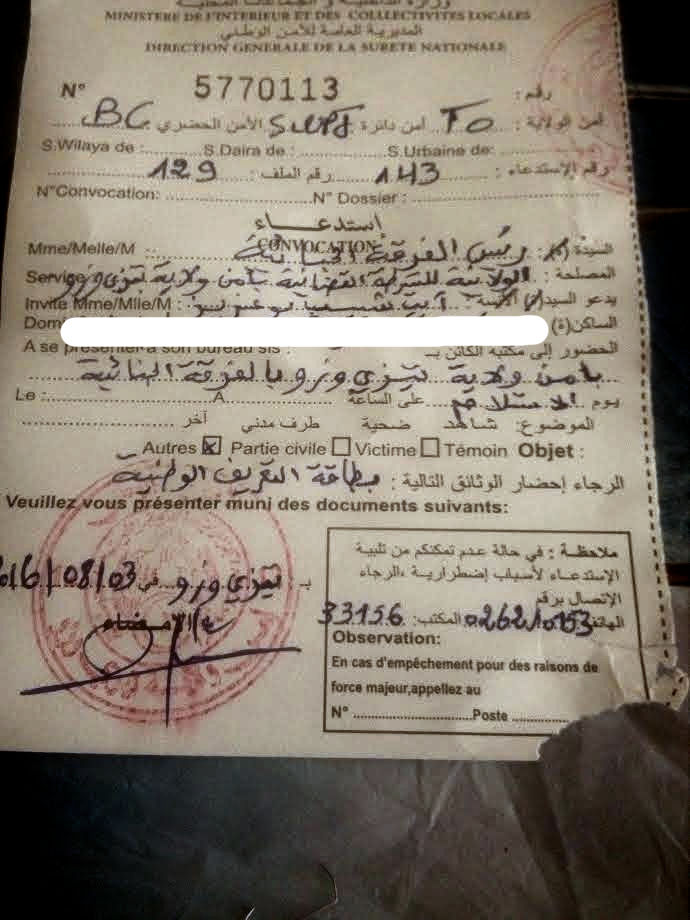 وزارة الداخلية و الجماعات المحلية
MINISTERE DE L'INTERIEUR ET DES COLLECTIVITES LOCALES
المديرية العامة للأمن الوطني
DIRECTION GENERALE DE LA SURETE NATIONALE
N° 5770113 رقم :
أمن الولاية : TO أمن دائرة SWPJ الأمن الحضري BC
S.Wilaya de : S.Daira de : S.Urbaine de:
رقم الإستدعاء : 143 رقم الملف : 129
N°Convocation: N° Dossier :
إستدعاء
CONVOCATION
Mme/Melle/M : رئيس الفرقة الجنائية السيدة
Service الولائية للشرطة القضائية بأمن ولاية تيزي وزو المصلحة :
Invite Mme/Mlle/M : يدعو السيد
Dom الساكن(ة)
A se présenter à son bureau sis : الحضور إلى مكتبه الكائن بـ
بأمن ولاية تيزي وزو بالفرقة الجنائية
Le : A يوم الاستلام على الساعة
الموضوع: شاهد ضحية طرف مدني آخر
Autres x Partie civile Victime Témoin Objet :
الرجاء إحضار الوثائق التالية : بطاقة التعريف الوطنية
Veuillez vous présenter muni des documents suivants:
بـ تيزي وزو في 016/08/03
الإمضاء
ملاحظة : في حالة عدم تمكنكم من تلبية
الإستدعاء لأسباب إضطرارية ،الرجاء
الإتصال برقم
الهاتف 026210153 المكتب: 33156
Observation:
En cas d'empêchement pour des raisons de
force majeur,appellez au
N° Poste